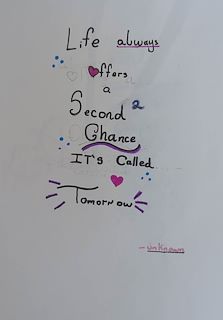 Life always
offers
a
Second 2
Chance
IT's Called
Tomorrow
- unknown